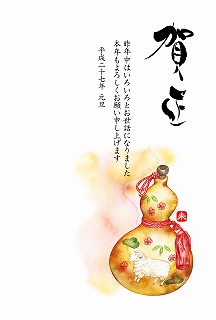 賀正
昨年中はいろいろとお世話になりました
本年もよろしくお願い申し上げます
平成二十七年 元旦
未